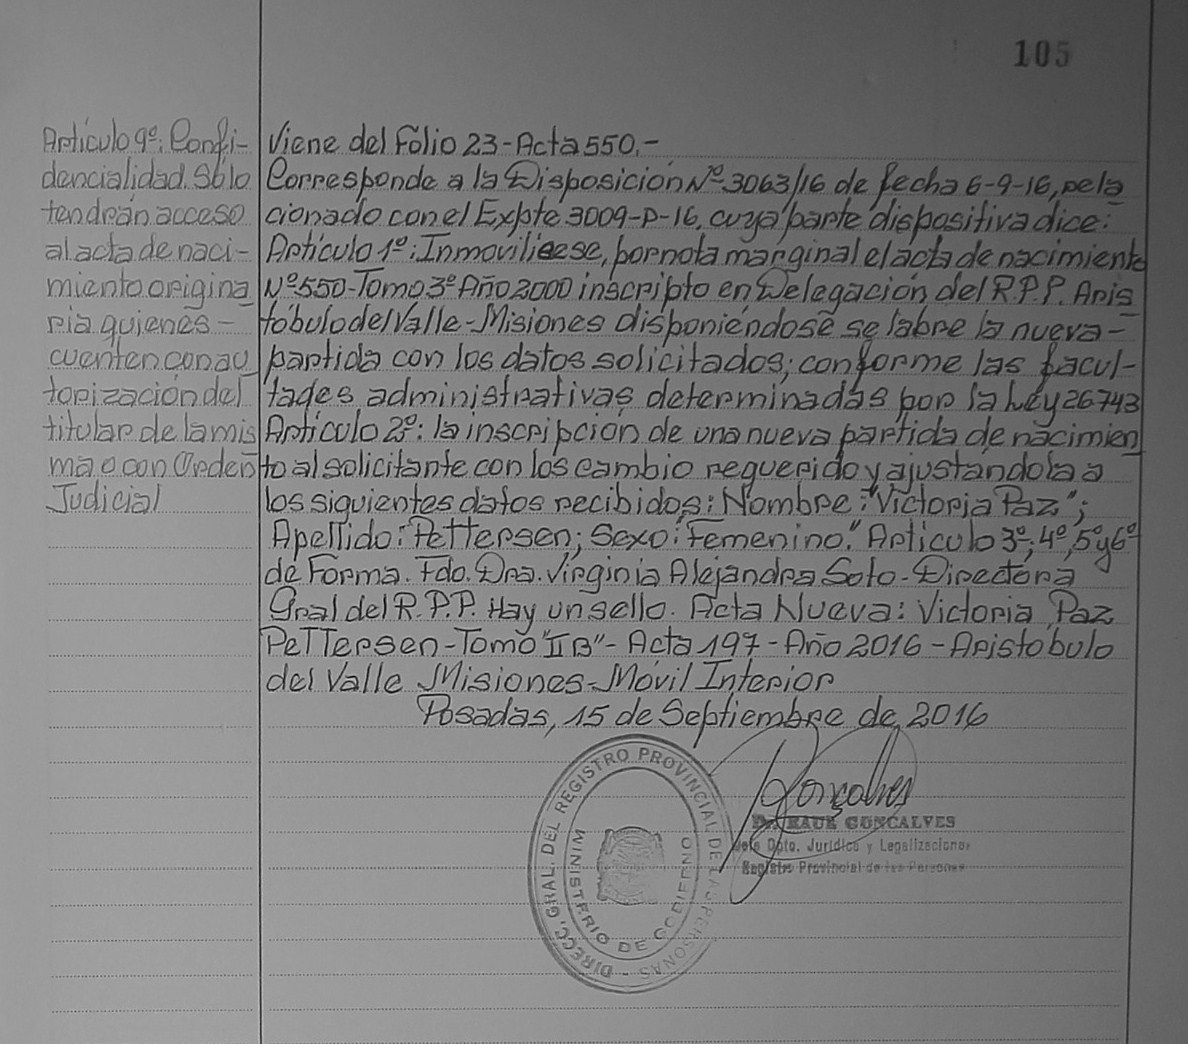 105
Artículo 9º: Confi-
dencialidad. Sólo
tendrán acceso
al acta de naci-
miento origina
ria quienes -
cuenten con au
torización del
titular de la mis
ma o con Orden
Judicial
Viene del Folio 23 - Acta 550.-
Corresponde a la Disposición Nº 3063/16 de fecha 6-9-16, rela
cionado con el Expte 3009-P-16, cuya parte dispositiva dice:
Artículo 1º: Inmovilicese, por nota marginal el acta de nacimiento
Nº 550-Tomo 3º Año 2000 inscripto en Delegación del R.P.P. Aris
tóbulo del Valle - Misiones disponiéndose se labre la nueva -
partida con los datos solicitados; conforme las facul-
tades administrativas determinadas por la Ley 26743
Artículo 2º: la inscripción de una nueva partida de nacimien
to al solicitante con los cambio requerido y ajustandola a
los siguientes datos recibidos: Nombre: "Victoria Paz";
Apellido: Pettersen; Sexo: Femenino." Artículo 3º; 4º, 5º y 6º
de Forma. Fdo. Dra. Virginia Alejandra Soto - Directora
Gral del R.P.P. Hay un sello. Acta Nueva: Victoria Paz
Pettersen - Tomo "II B" - Acta 197 - Año 2016 - Aristóbulo
del Valle Misiones - Móvil Interior
Posadas, 15 de Septiembre de 2016
DIRECC. GRAL. DEL REGISTRO PROVINCIAL DE LAS PERSONAS -
MINISTERIO DE GOBIERNO
Goncalves
Dr. RAUL GONCALVES
Jefe Dpto. Jurídico y Legalizaciones
Registro Provincial de las Personas